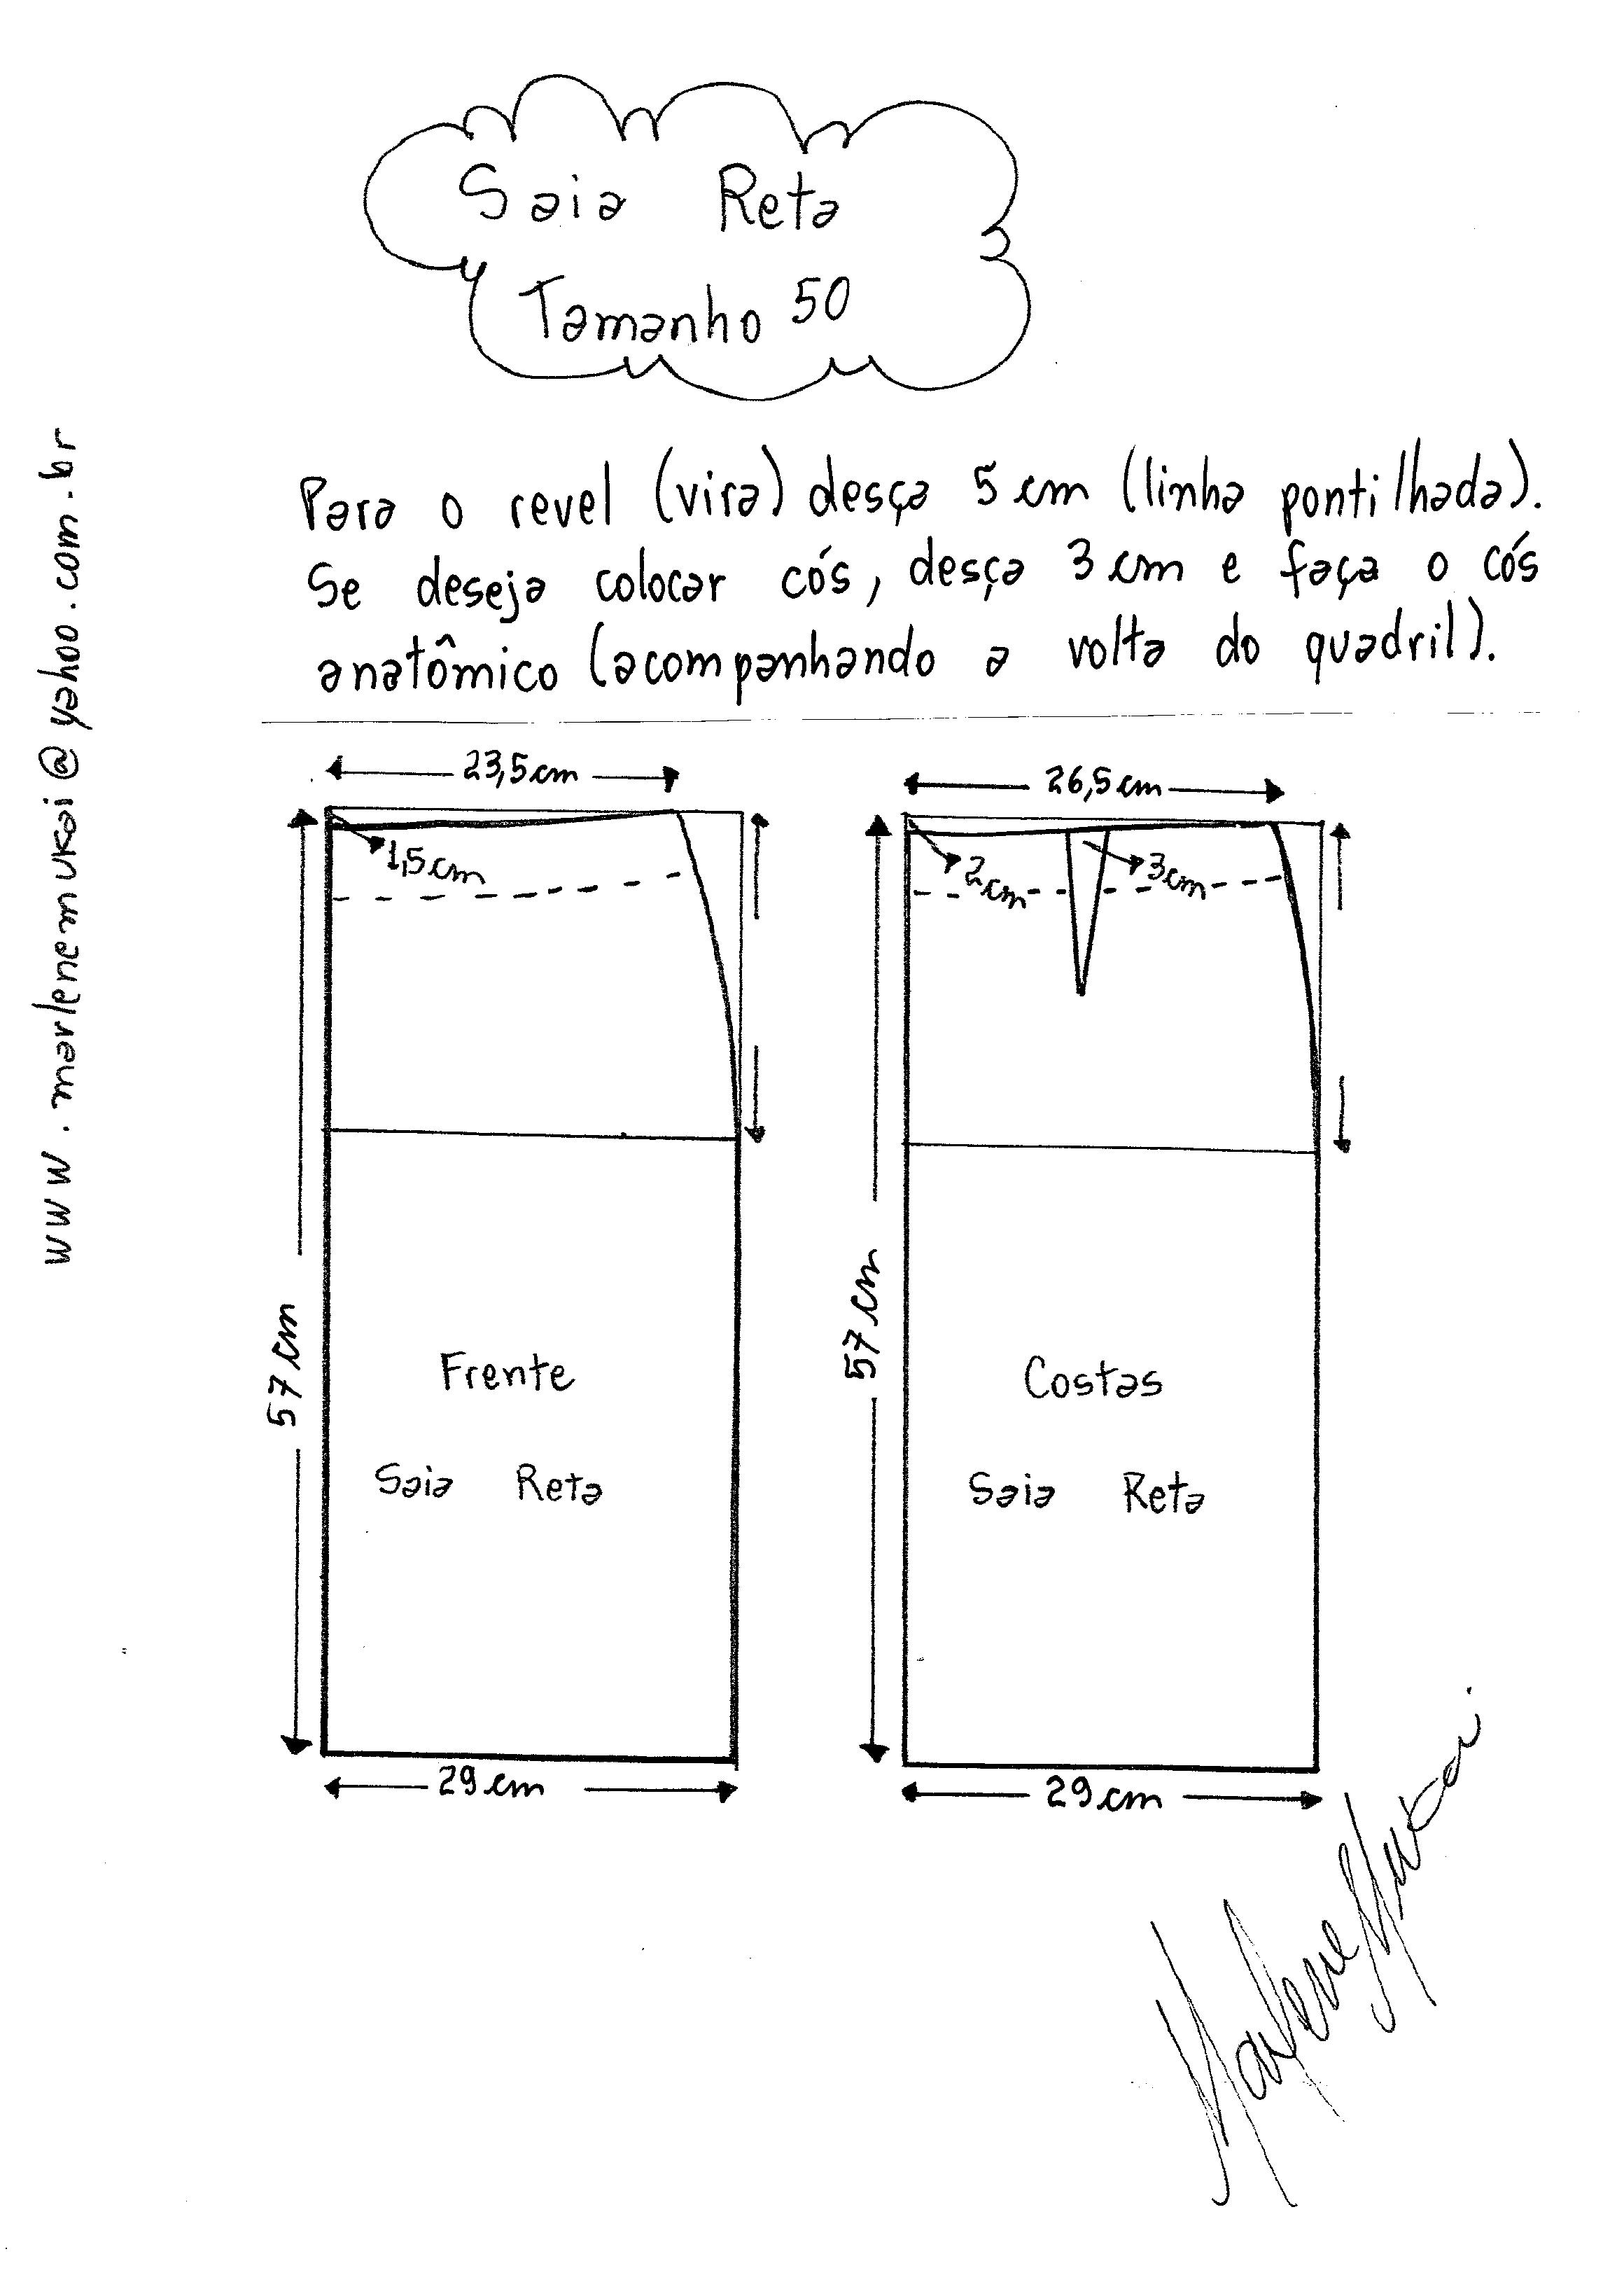 Saia Reta
Tamanho 50
www.marlenemukai@yahoo.com.br
Para o revel (vira) desça 5 cm (linha pontilhada).
Se deseja colocar cós, desça 3 cm e faça o cós
anatômico (acompanhando a volta do quadril).
23,5 cm
26,5 cm
1,5 cm
2 cm
3 cm
57 cm
57 cm
Frente
Saia Reta
Costas
Saia Reta
29 cm
29 cm
Marlene Mukai